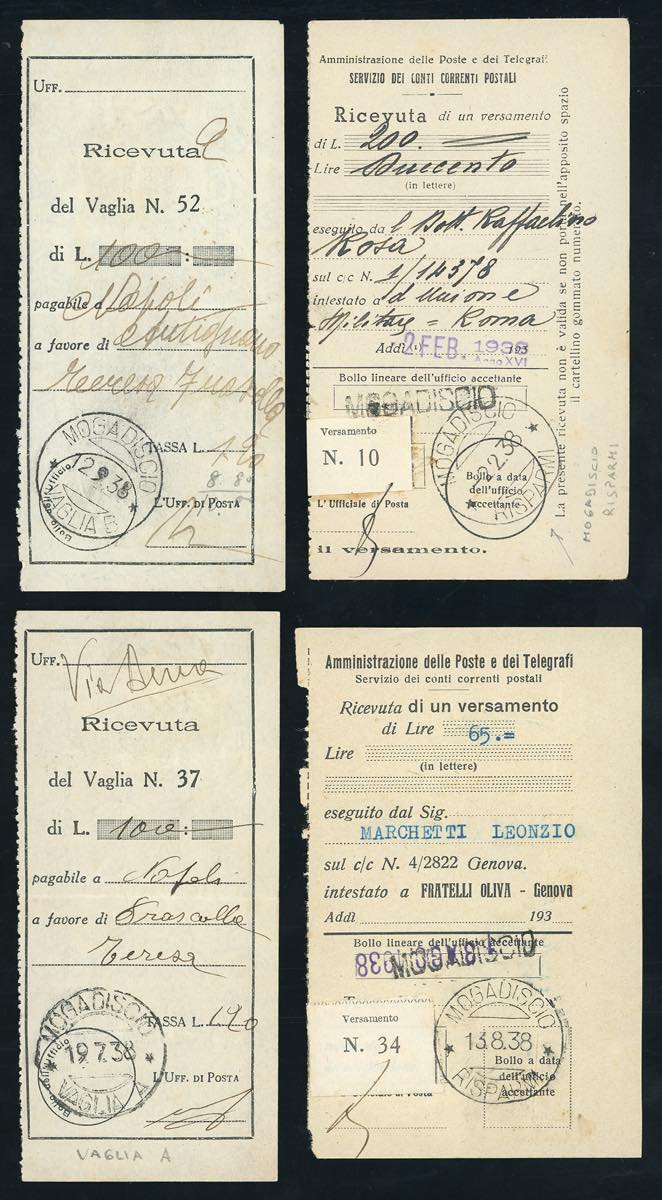 UFF.
Ricevuta
del Vaglia N. 52
di L. 100 :
pagabile a Napoli
a favore di Antignano
Teresa
MOGADISCIO
TASSA L. 1.90
8 8
Bollo dell'Ufficio
2.9.38
VAGLIA B
L'UFF. DI POSTA
Amministrazione delle Poste e dei Telegrafi
SERVIZIO DEI CONTI CORRENTI POSTALI
Ricevuta di un versamento
di L. 200.
Lire Duecento
(in lettere)
eseguito da l Dott. Raffaelino
Rosa
sul c/c N. 1/14378
intestato a d Unione
Militare = Roma
Addì 2 FEB. 1938 193
Anno XVI
Bollo lineare dell'ufficio accettante
MOGADISCIO
MOGADISCIO
Versamento
N. 10
2.38
Bollo a data
dell'ufficio
accettante
RISPARMI
L'Ufficiale di Posta
il versamento.
La presente ricevuta non è valida se non porta nell'apposito spazio
il cartellino gommato numerato.
MOGADISCIO
RISPARMI
UFF. Via Aerea
Ricevuta
del Vaglia N. 37
di L. 100 :
pagabile a Napoli
a favore di
Teresa
MOGADISCIO
TASSA L. 1.90
19.7.38
Bollo dell'Ufficio
VAGLIA A
L'UFF. DI POSTA
VAGLIA A
Amministrazione delle Poste e dei Telegrafi
Servizio dei conti correnti postali
Ricevuta di un versamento
di Lire 65.=
Lire
(in lettere)
eseguito dal Sig.
MARCHETTI LEONZIO
sul c/c N. 4/2822 Genova.
intestato a FRATELLI OLIVA - Genova
Addì 193
Bollo lineare dell'ufficio accettante
MOGADISCIO
MOGADISCIO
Versamento
N. 34
13.8.38
Bollo a data
dell'ufficio
accettante
RISPARMI